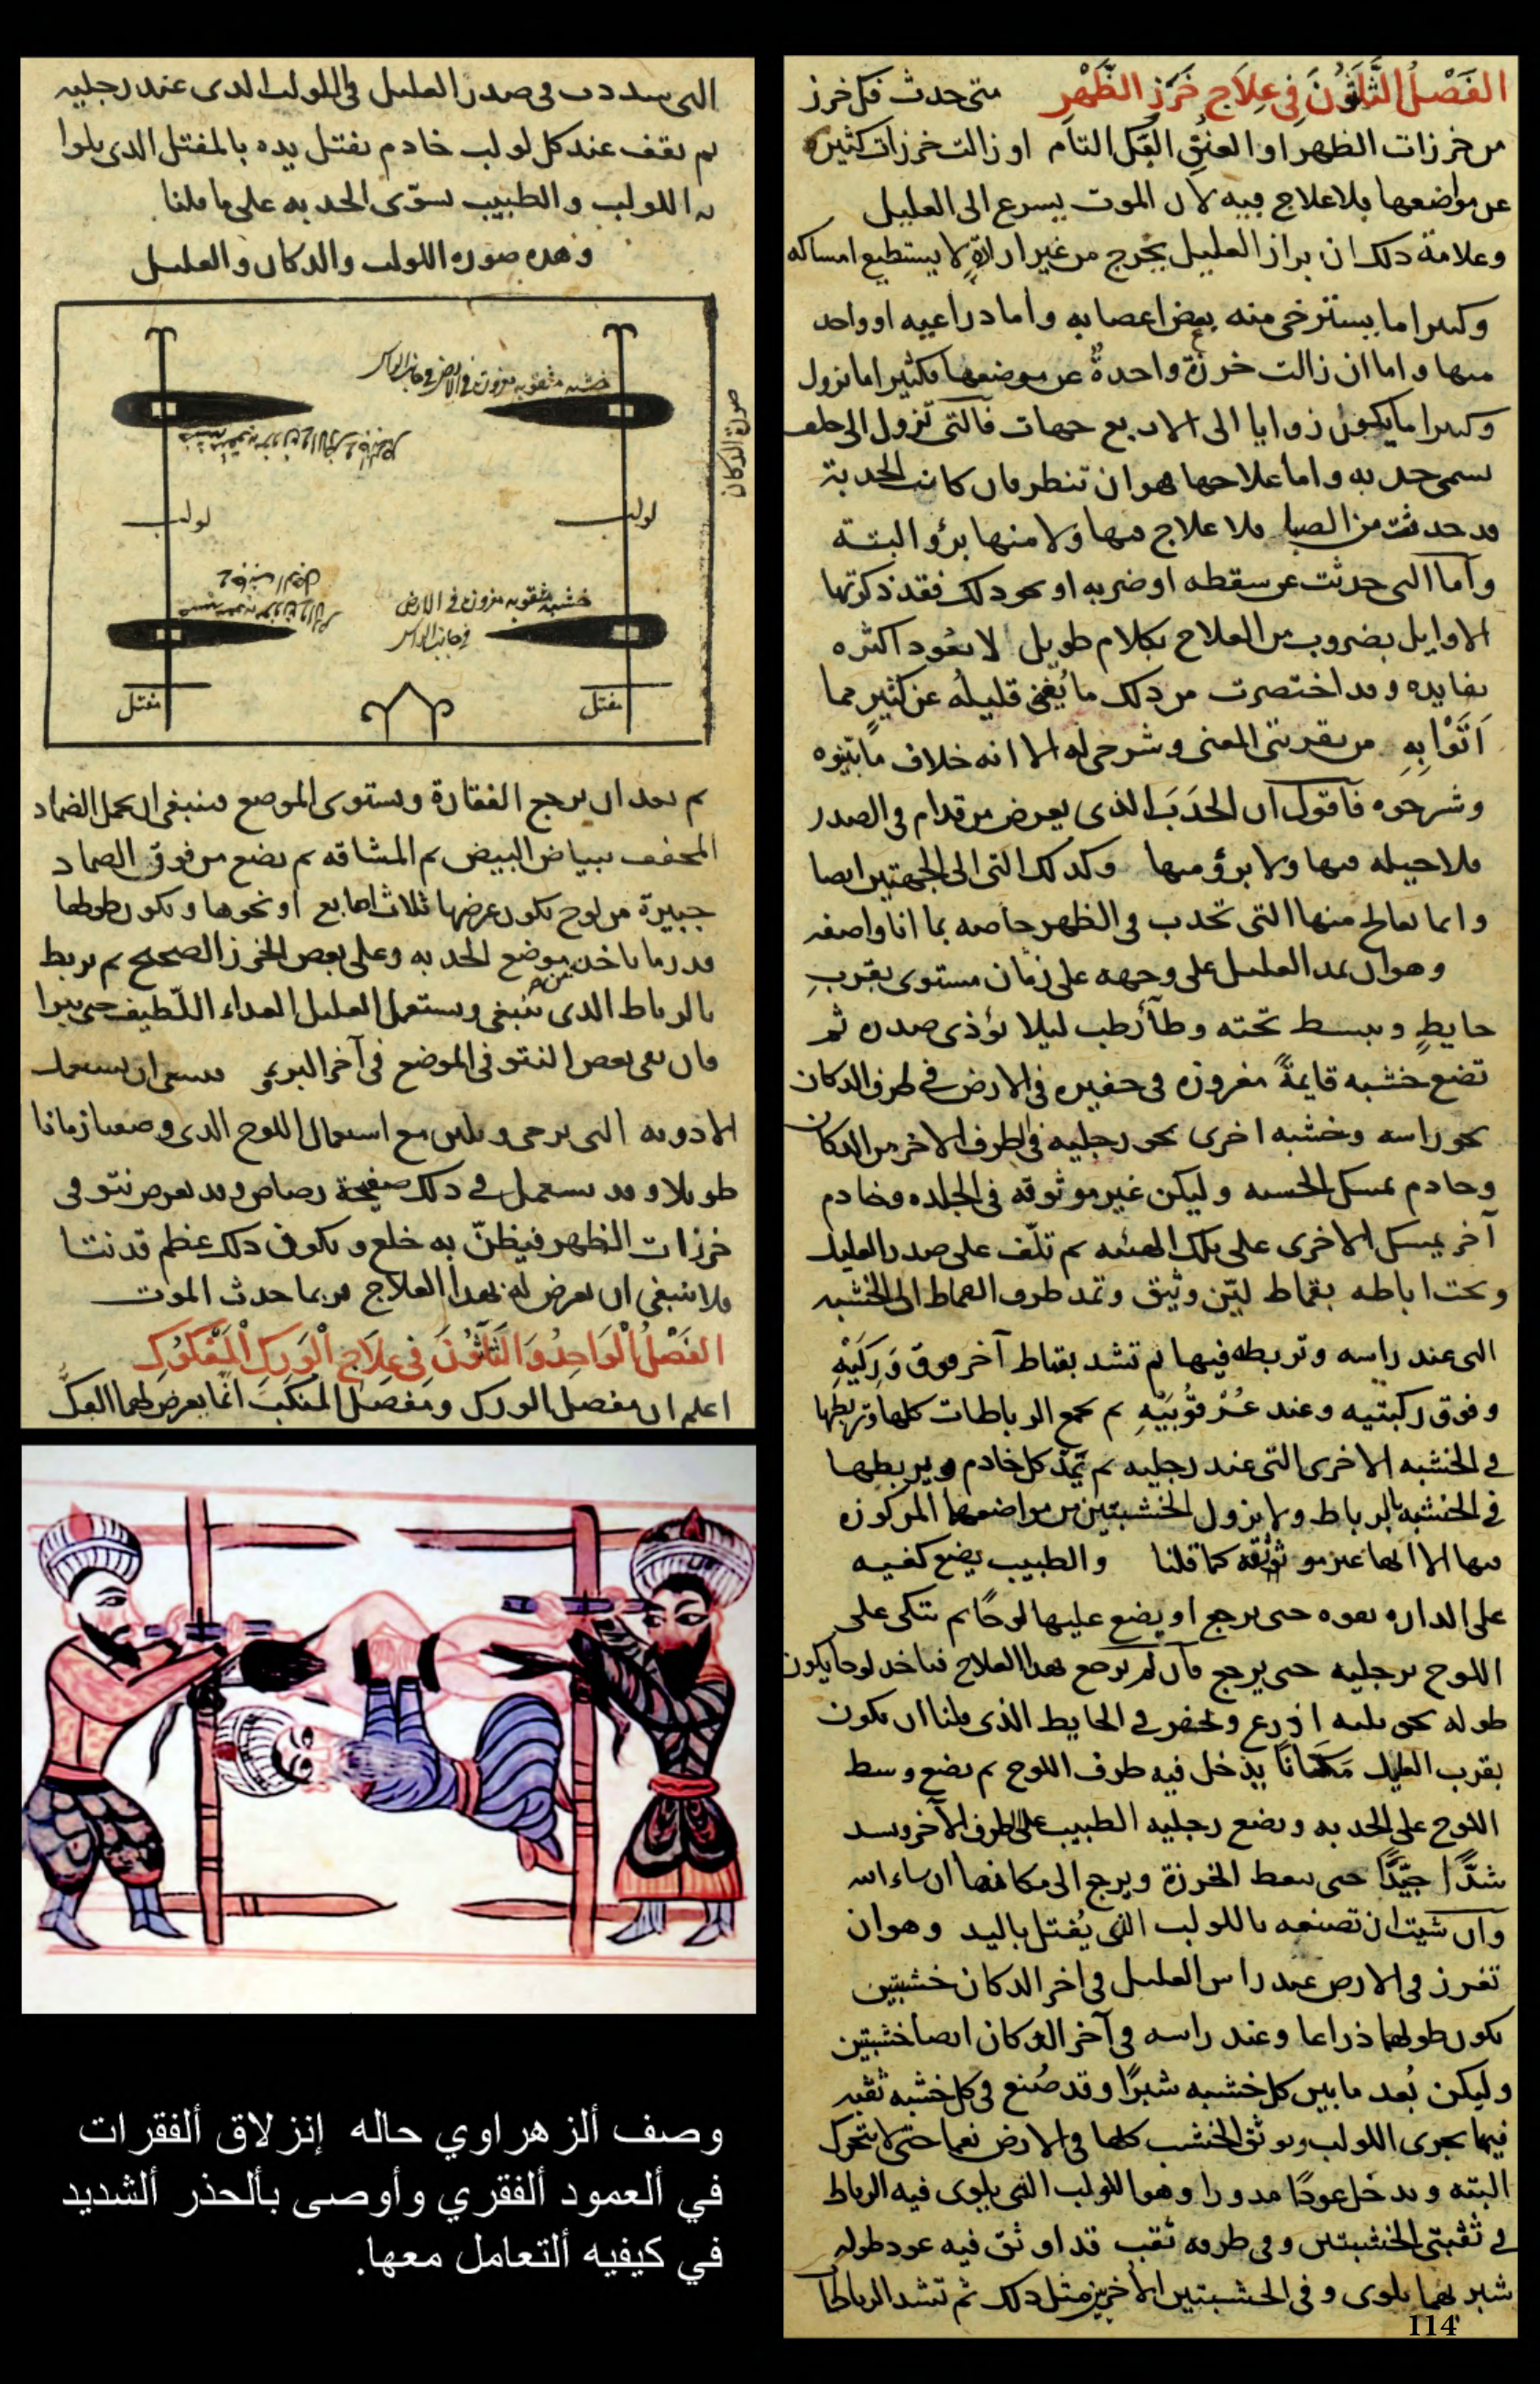 الفَصْلُ الثَّلَثُونَ فِي عِلَاجِ خَرَزِ الظَّهْرِ متى حدث فك خرز
من خرزات الظهر او العنق الفك التام او زالت خرزات كثيره
عن مواضعها فلا علاج فيه لان الموت يسرع الى العليل
وعلامة ذلك ان براز العليل يخرج من غير ارادةٍ لا يستطيع امساكه
وكثيرا ما يسترخى منه بعض اعضايه واما ذراعيه او واحد
منها واما ان زالت خرزة واحدةٌ عن موضعها فكثيرا ما تزول
وكثيرا ما يكون زوايا الى الاربع جهات فالتى تزول الى خلف
تسمى حدبه واما علاجها فهو ان تنظر فان كانت الحدبة
قد حدثت من الصبا فلا علاج فيها ولا منها برؤ البتة
وأما التى حدثت عن سقطه او ضربه او نحو ذلك فقد ذكرتها
الاوايل بضروب من العلاج بكلام طويل لا يعُود اكثره
بفايده وقد اختصرت من ذلك ما يُغنى قليلُه عن كثير مما
اَتَوْا بِهِ من تقريبى المعنى وشرحى له الا انه خلاف ما بينوه
وشرحوه فاقول ان الحَدَبَ الذى يعرض من قدام فى الصدر
فلا حيله فيها ولا برؤ منها وكذلك التى الى الجهتين ايضا
وانما يعالج منها التى تحدب فى الظهر خاصه بما انا واصفه
وهو ان يمد العليل على وجهه على دكان مستوى بقربِ
حايطٍ ويبسط تحته وطأ رطب ليلا يؤذى صدره ثم
تضع خشبه قايمةً مغروزه فى حفيره فى الارض فى طرف الدكان
نحو راسه وخشبه اخرى نحو رجليه فى الطرف الاخر من الدكان
وخادم يمسك الخشبه وليكن غير موثوقه فى الجلده وخادم
آخر يمسك الاخرى على تلك الهيئه ثم تلّف على صدر العليل
وتحت اباطه بقماط ليّن وثيق وتمد طرف القماط الى الخشبه
التى عند راسه وتربطه فيها ثم تشد بقماط آخر فوق وَرِكَيْهِ
وفوق ركبتيه وعند عُرْقُوبَيْهِ ثم تجمع الرباطات كلها وتربطها
فى الخشبه الاخرى التى عند رجليه ثم يَمُدّ كل خادم ويربطها
فى الخشبه بالرباط ولا يزول الخشبتين من مواضعهما المركوزه
فيها الا انها غير موثوقة كما قلنا والطبيب يضع كفيه
على الداره بقوه حتى يرجع او يضع عليها لوحًا ثم يتكى على
اللوح برجليه حتى يرجع فان لم يرجع بهذا العلاج فياخذ لوحا يكون
طوله نحو ثلثه اذرع وتحفر فى الحايط الذى قلنا ان يكون
بقرب العليل مَكَانًا يدخل فيه طرف اللوح ثم يضع وسط
اللوح على الحدبه ويضع رجليه الطبيب على الطرف الآخر ويشد
شدًّا جيّدًا حتى يضغط الخرزة ويرجع الى مكانها ان شاء الله
وان شيت ان تصنعه باللولب الذى يُفتل باليد وهو ان
تغرز فى الارض عند راس العليل فى اخر الدكان خشبتين
يكون طولهما ذراعا وعند راسه فى آخر الدكان ايضا خشبتين
وليكن بُعد ما بين كل خشبه شبرًا وقد صُنع فى كل خشبه ثقبه
فيها يجرى اللولب وتوثق الخشب كلها فى الارض نعما حتى لا يتحرك
البته ويدخل عودًا مدورا وهو اللولب الذى يلوى فيه الرباط
فى ثقبتى الخشبتين وفى طرفه ثقب قد اوثق فيه عود طوله
شبر بهما يلوى وفى الخشبتين الأخريين مثل ذلك ثم تشد الرباطات
114
التى شددت فى صدر العليل فى اللولب الذى عند رجليه
ثم يقف عند كل لولب خادم يفتل يده بالمفتل الذى يلوا
به اللولب والطبيب يسوّى الحدبه على ما قلنا
وهذه صوره اللولب والدكان والعليل
صورة الدكان
خشبه مثقوبه مغروزه فى الارض فى جانب الراس
لولب
لولب
خشبه مثقوبه مغروزه فى الارض
فى جانب الراس
مفتل
مفتل
ثم بعد ان يرجع الفقارة ويستوى الموضع فينبغى ان يحمل الضماد
المجفف ببياض البيض ثم المشاقه ثم يضع من فوق الضماد
جبيرة من لوح يكون عرضها ثلاث اصابع او نحوها ويكون طولها
قدر ما ياخذ من موضع الحدبه وعلى بعض الخرز الصحيح ثم يربط
بالرباط الذى ينبغى ويستعمل العليل الغذاء اللّطيف حتى يبرا
فان بقى بعض النتو فى الموضع فى آخر البرءِ فينبغى ان يستعمل
الادويه التى ترخى وتلين مع استعمال اللوح الذى وصفنا زمانا
طويلا وقد يستعمل فى ذلك صفيحة رصاص وقد يعرض نتو فى
خرزات الظهر فيظنّ به خلع ويكون ذلك عظم قد نتا
فلا ينبغى ان يعرض له بهذا العلاج فربما حدث الموت
الفَصْلُ الْوَاحِدُ وَالثَلَثُونَ فِى عِلَاجِ الْوَرِكِ الْمَفْكُوكِ
اعلم ان مفصل الورك ومفصل المنكب انما يعرض لهما الفكّ
وصف ألزهراوي حاله إنزلاق ألفقرات
في ألعمود ألفقري وأوصى بألحذر ألشديد
في كيفيه ألتعامل معها.